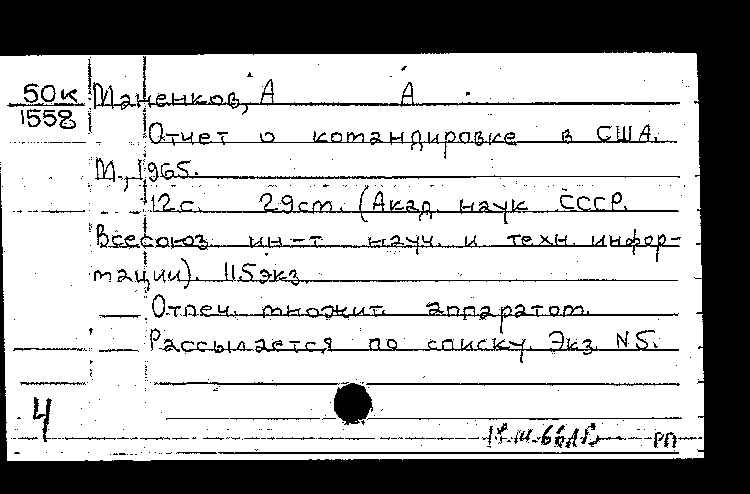 50к
1558
Маненков, А А
Отчет о командировке в США.
М., 1965.
12с. 29см. (Акад. наук СССР.
Всесоюз. ин-т науч. и техн. инфор-
мации). 115экз.
Отпеч. множит. аппаратом.
Рассылается по списку. Экз. N5.
4
РП